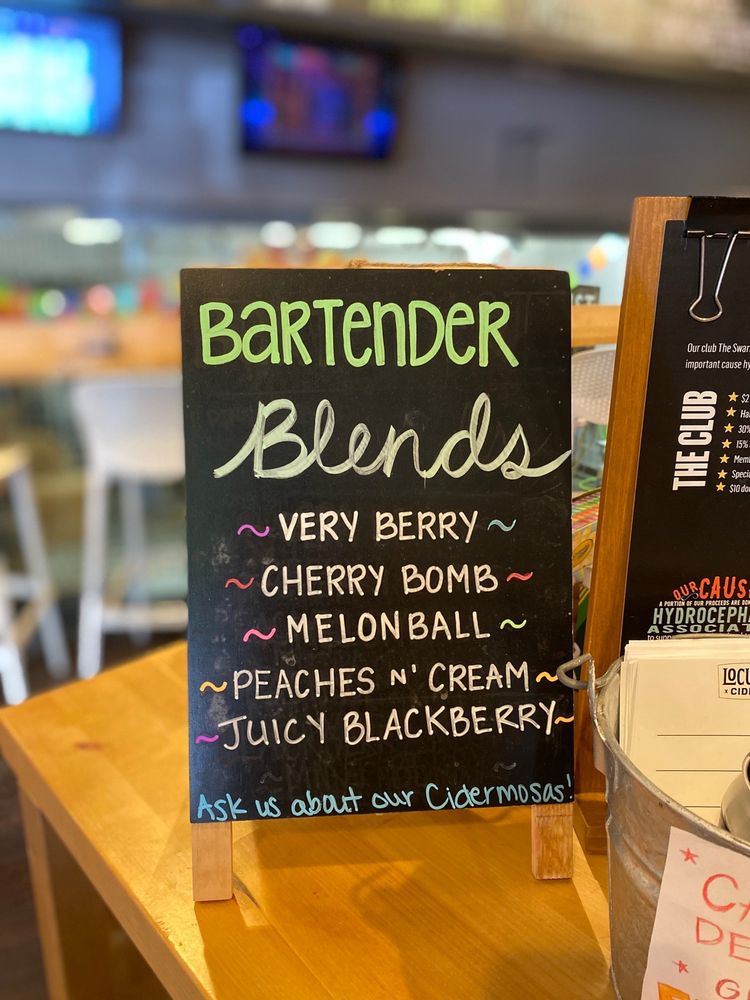 BARTENDER
Blends
~ VERY BERRY ~
~ CHERRY BOMB ~
~ MELONBALL ~
~ PEACHES N' CREAM ~
~ JUICY BLACKBERRY ~
Ask us about our Cidermosas!
Our club The Swar
important cause hy
THE CLUB
★ $2
★ Ha
★ 30%
★ 15%
★ Mem
★ Specia
★ $10 do
OUR CAUS
A PORTION OF OUR PROCEEDS ARE DON
HYDROCEPH
ASSOCIAT
LOCU
x CID
CA
DE
G